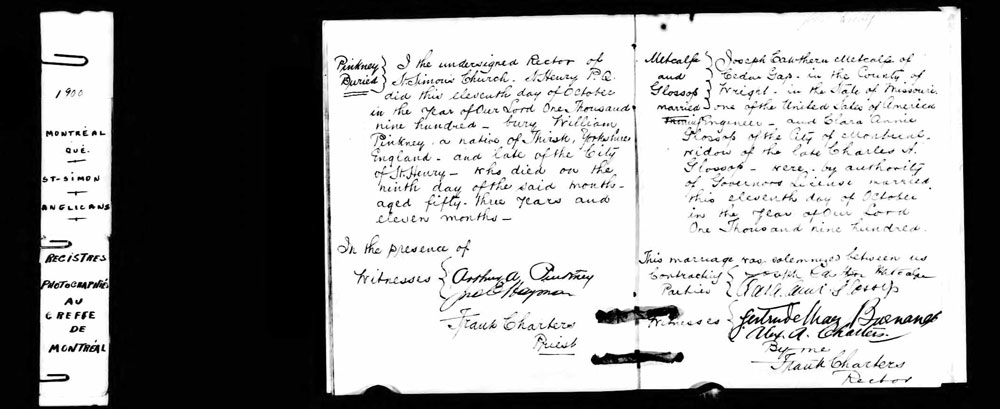 1900
MONTRÉAL
QUÉ.
ST-SIMON
ANGLICANS
REGISTRES
PHOTOGRAPHIÉS
AU
GREFFE
DE
MONTRÉAL
Pinkney
Buried
I the undersigned Rector of
St. Simon's Church. St. Henry P.Q.
did this eleventh day of October
in the Year of Our Lord One Thousand
nine hundred - bury William
Pinkney. a native of Thirsk, Yorkshire
England - and late of the City
of St. Henry - who died on the
ninth day of the said month -
aged fifty-three years and
eleven months -
In the presence of
Witnesses
Arthur A. Pinkney
Frank Charters
Priest
Metcalfe
and
Glossop
married
Joseph Cawthern Metcalfe of
Cedar Gap - in the County of
Wright - in the State of Missouri
one of the United States of America
Engineer - and Clara Annie
Glossop of the City of Montreal -
widow of the late Charles A.
Glossop - were by authority
of Governors License married
this eleventh day of October
in the Year of Our Lord
One Thousand nine hundred.
This marriage was solemnized between us
Contracting
Parties
Joseph Metcalfe
Glossop
Witnesses
Gertrude May
Alex. A. Charters.
By me
Frank Charters
Rector